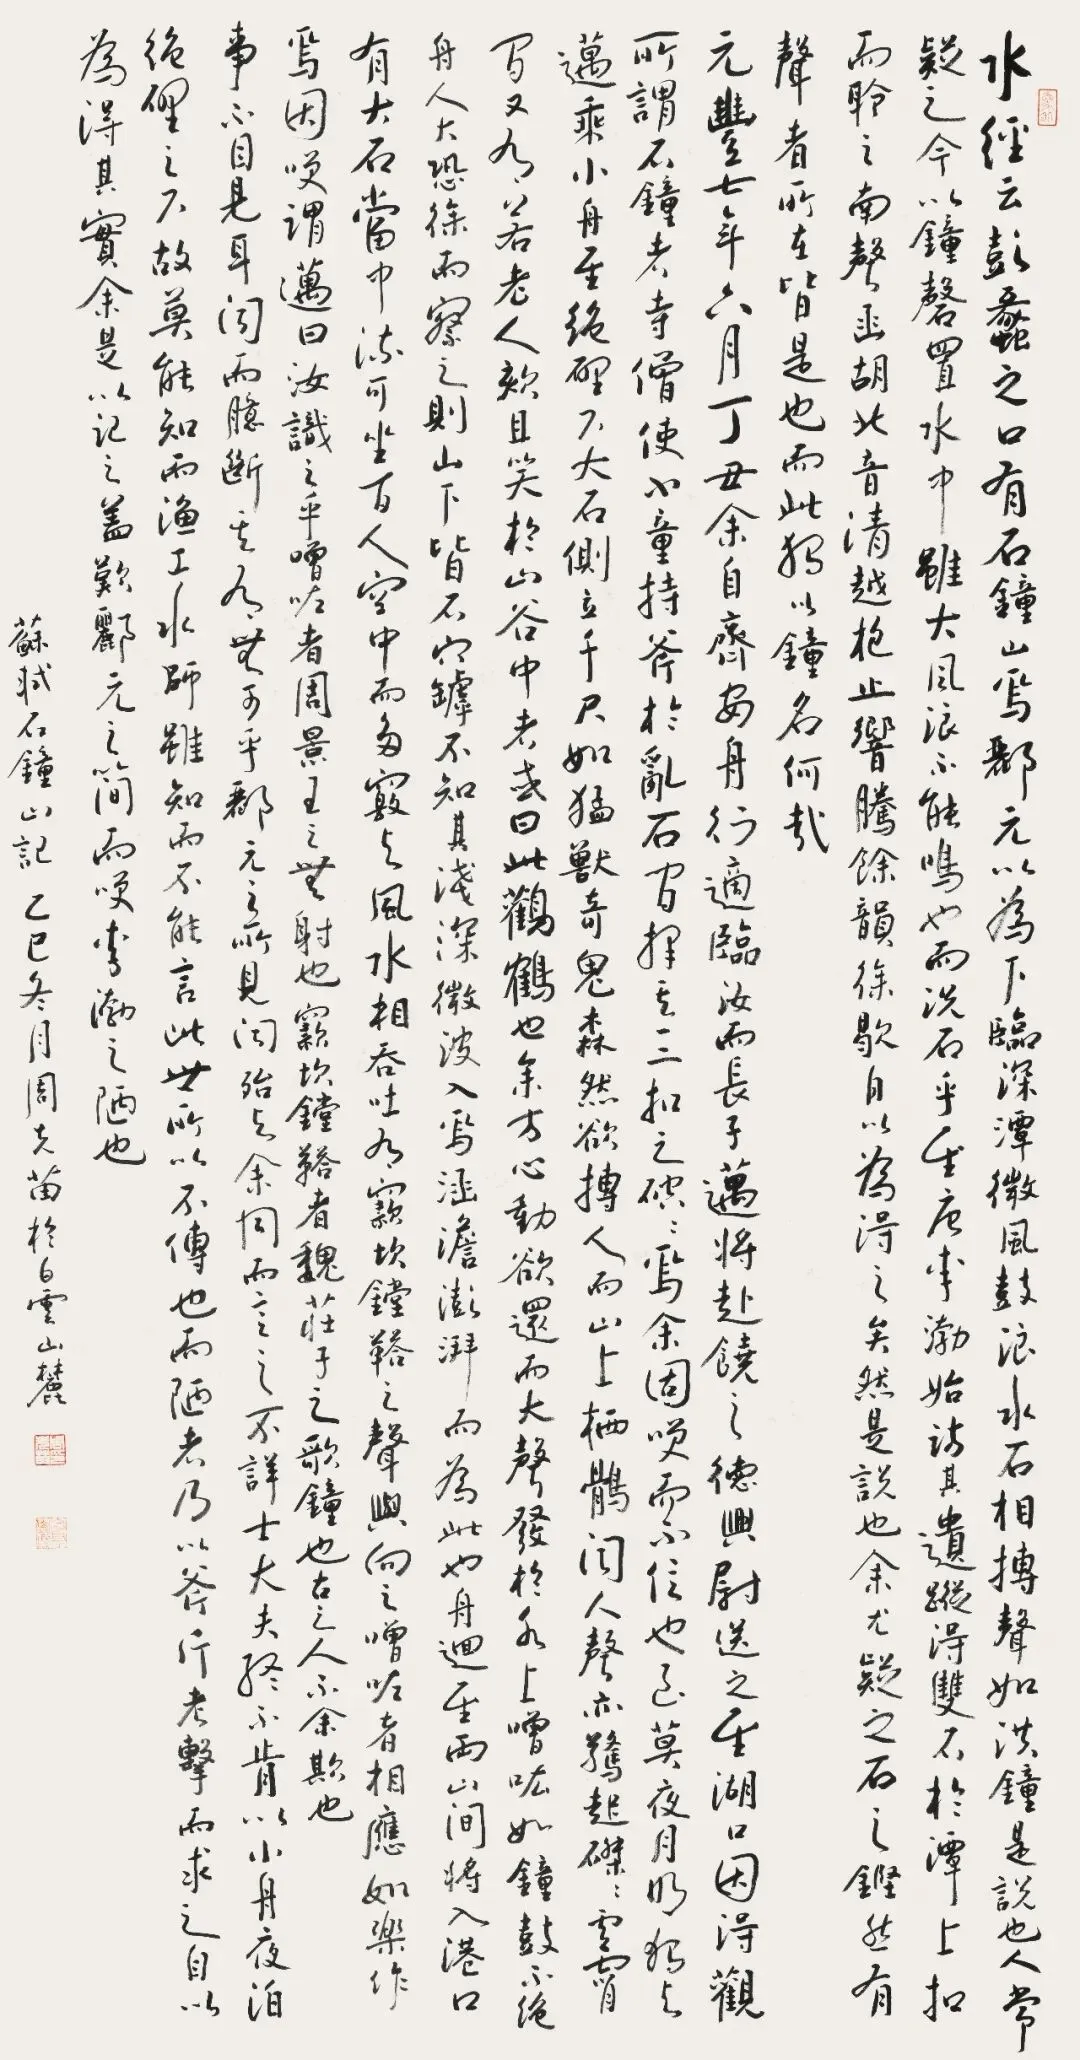 水經云彭蠡之口有石鐘山焉酈元以為下臨深潭微風鼓浪水石相搏聲如洪鐘是說也人常
疑之今以鐘磬置水中雖大風浪不能鳴也而況石乎至唐李渤始訪其遺蹤得雙石於潭上扣
而聆之南聲函胡北音清越枹止響騰餘韻徐歇自以為得之矣然是說也余尤疑之石之鏗然有
聲者所在皆是也而此獨以鐘名何哉
元豐七年六月丁丑余自齊安舟行適臨汝而長子邁將赴饒之德興尉送之至湖口因得觀
所謂石鐘者寺僧使小童持斧於亂石間擇其一二扣之硿〻焉余固笑而不信也至莫夜月明獨與
邁乘小舟至絕壁下大石側立千尺如猛獸奇鬼森然欲搏人而山上栖鶻聞人聲亦驚起磔〻雲霄
間又有若老人欬且笑於山谷中者或曰此鸛鶴也余方心動欲還而大聲發於水上噌吰如鐘鼓不絕
舟人大恐徐而察之則山下皆石穴罅不知其淺深微波入焉涵澹澎湃而為此也舟迴至兩山間將入港口
有大石當中流可坐百人空中而多竅與風水相吞吐有窾坎鏜鞳之聲與向之噌吰者相應如樂作
焉因笑謂邁曰汝識之乎噌吰者周景王之無射也窾坎鏜鞳者魏莊子之歌鐘也古之人不余欺也
事不目見耳聞而臆斷其有無可乎酈元之所見聞殆與余同而言之不詳士大夫終不肯以小舟夜泊
絕壁之下故莫能知而漁工水師雖知而不能言此世所以不傳也而陋者乃以斧斤考擊而求之自以
為得其實余是以記之蓋歎酈元之簡而笑李渤之陋也
蘇軾石鐘山記 乙巳冬月周克苗於白雲山麓